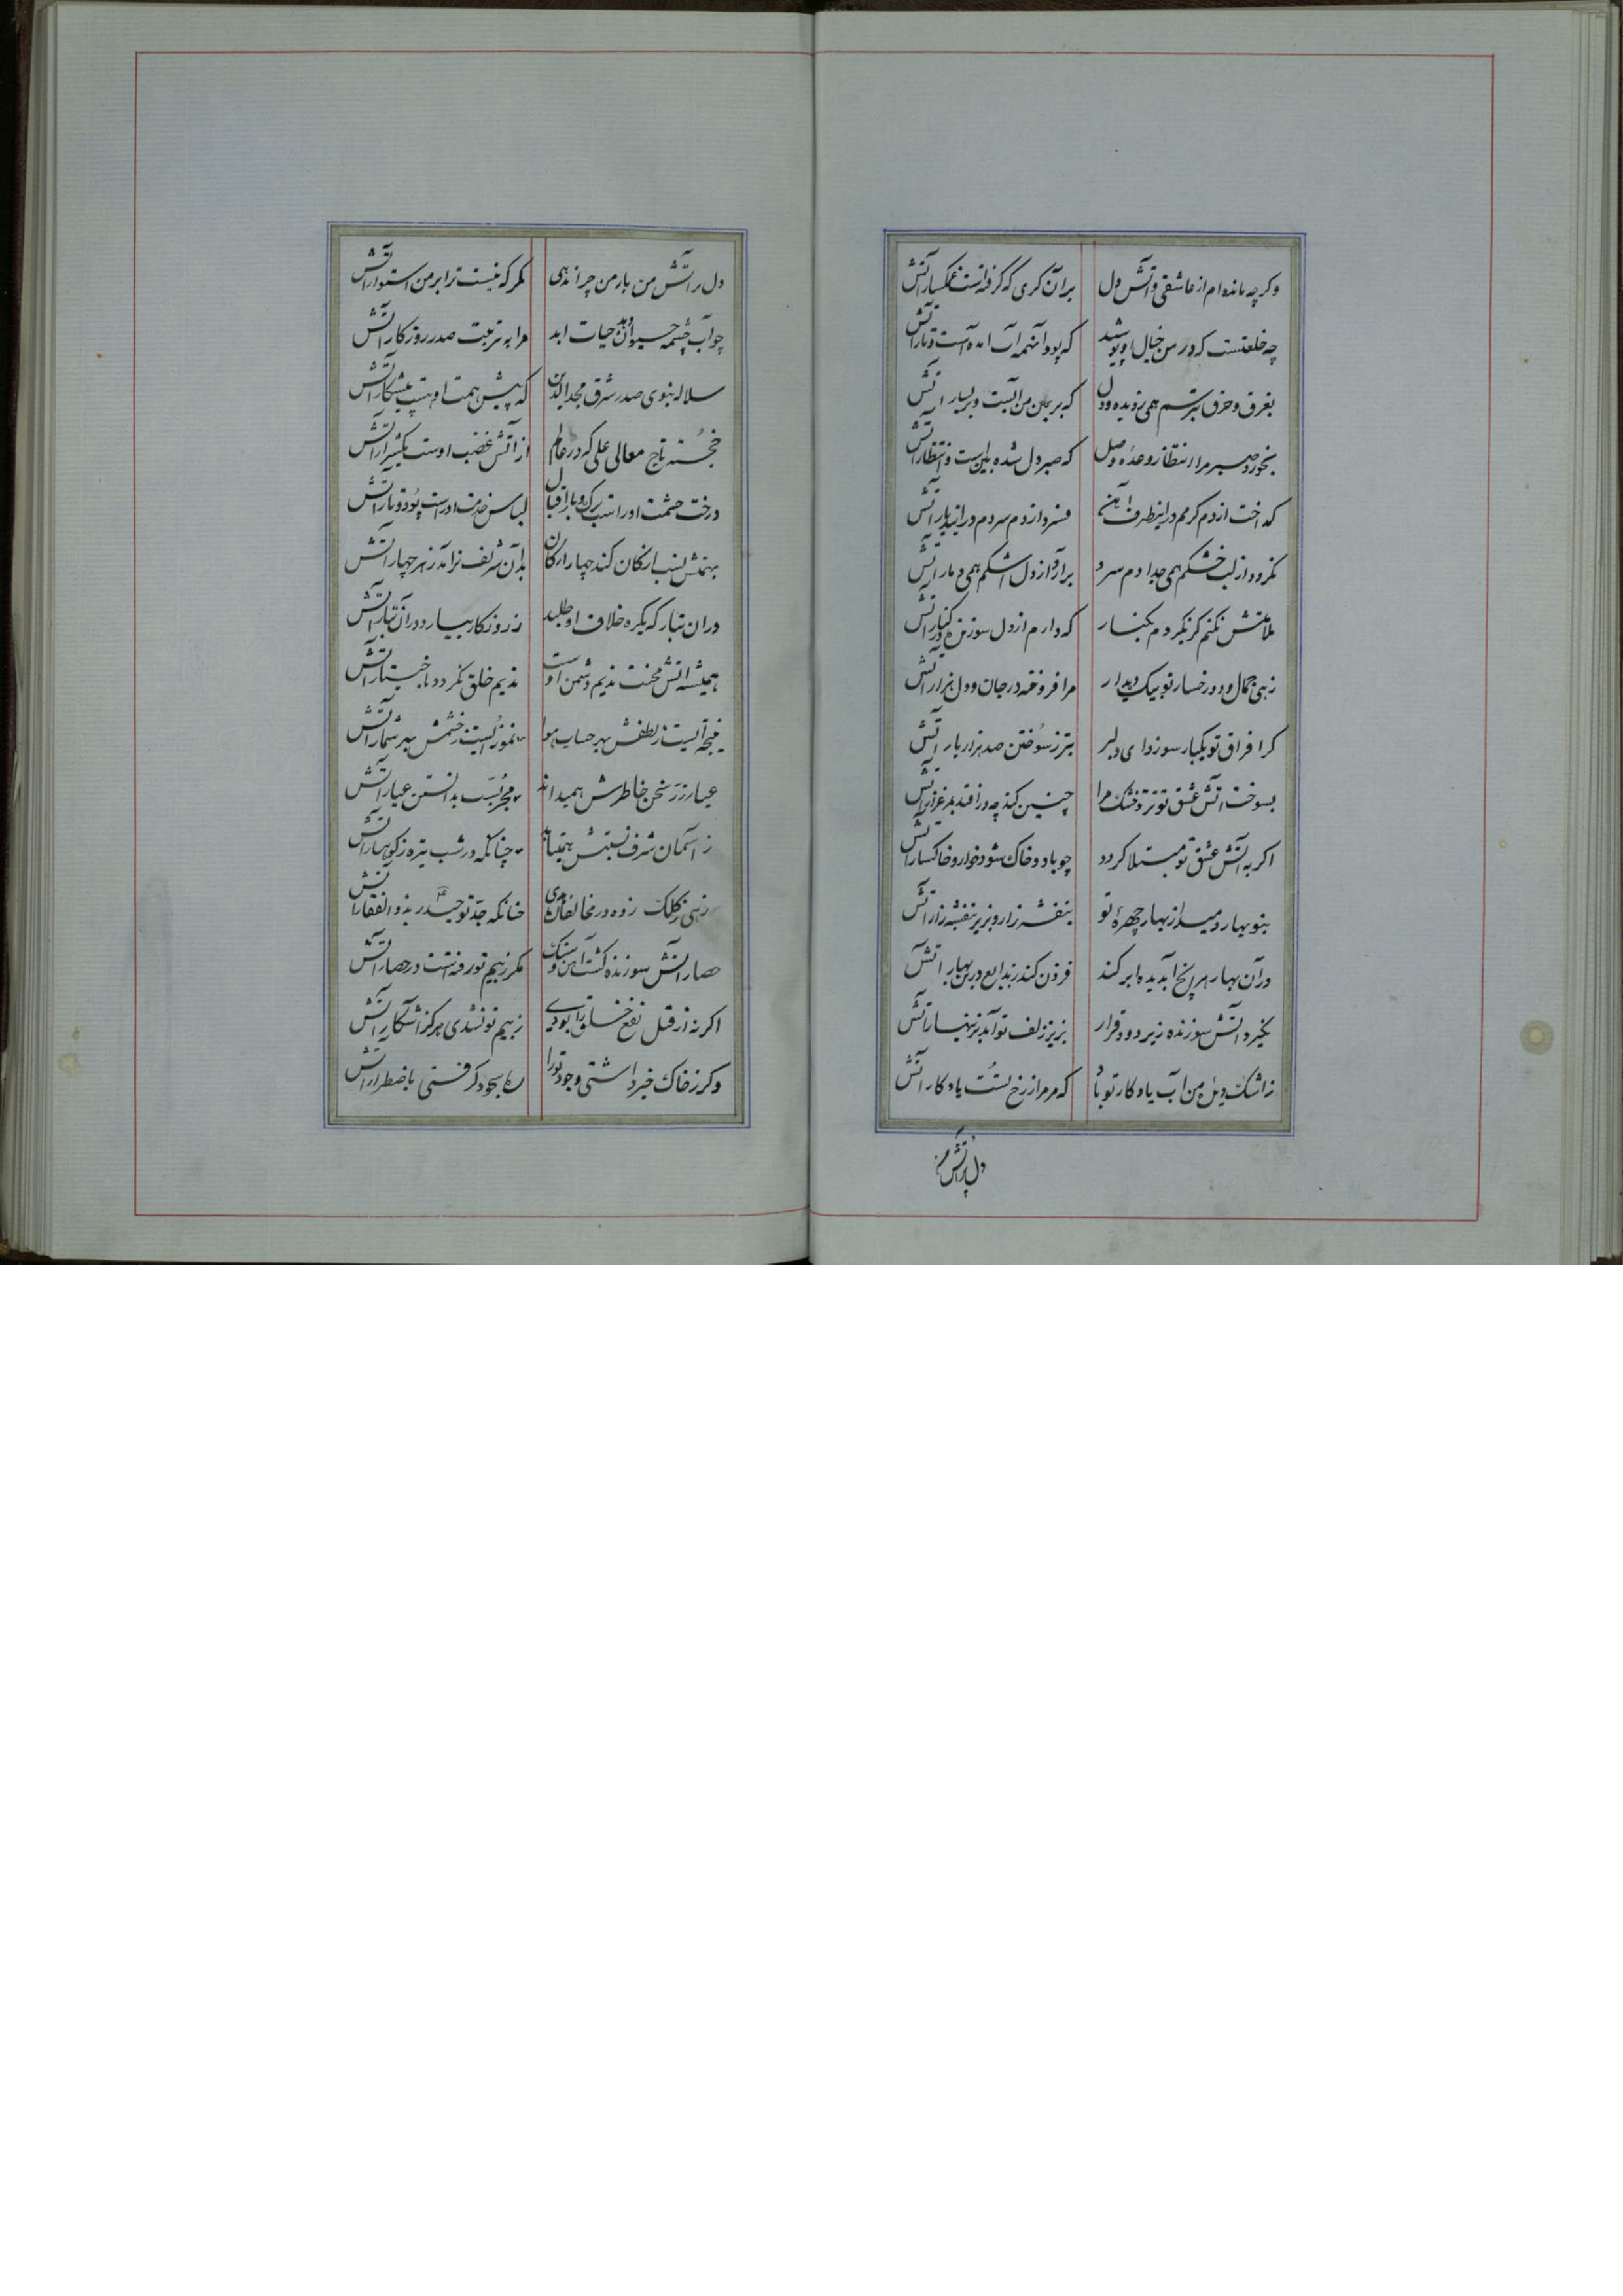 وکرچه مانده ام از عاشقی و آتش دل بر آن کری که گرفتست آتش
چه خلعتست که در من خیال او پوشید که پود آنهمه آب آمده است و تار آتش
بغرق و حرق بترسم همی ز دیده و دل که بر من آبست و بر یسار آتش
نخورد صبر مرا انتظار وعدهٔ وصل که صبر دل شده است و انتظار آتش
کداخت از دم کرمم در این طرف آهن فسرد از دم سردم در آن دیار آتش
نمرود از لب خشکم همی جدا دم سرد بر آرد از دل اشکم همی دمار آتش
ملامتش نکنم کر نکیردم بکنار که دارم از دل سوزنده در کنار آتش
زهی جمال و دو رخسار تو بیک دیدار مرا فروخته در جان و دل هزار آتش
کرا فراق تو یکبار سوزد ای دلبر بتر ز سوختن صد هزار بار آتش
بسوخت آتش عشق تو تر و خشک مرا چنین کند چه در افتد بمرغزار آتش
اکر به آتش عشق تو مبتلا کردد چو باد و خاک شود خوار و خاکسار آتش
بنوبهار دمید از بهار چهرهٔ تو بنفشه زار و بزیر بنفشه زار آتش
در آن بهار هر آنچ آب دیده ابر کند فزون کند ز بدایع در این بهار آتش
نکیرد آتش سوزنده زیر دود قرار بزیر زلف تو آمد بزینهار آتش
ز اشک دیدهٔ من آب یادکار تو باد که مر مرا ز رخ تست یادکار آتش
دل پر آتش من
دل پر آتش من بار من چرا ندهی مکر که نیست ترا بر من استوار آتش
چو آب چشمه حیوان دهد حیات ابد مرا به تربیت صدر روزکار آتش
سلاله نبوی صدر شرق مجدالدین که پیش همت او هست پیشکار آتش
خجسته تاج معالی علی که در عالم از آتش غضب اوست یک شرار آتش
درخت حشمت او راست برک و بار اقبال لباس خدمت او راست پود و تار آتش
بهمتش نسب ارکان کند چهار ارکان بدان شریف تر آمد ز هر چهار آتش
در آن تبار که یکره خلاف او طلبد ز روزکار ببارد در آن تبار آتش
همیشه آتش محنت ندیم دشمن اوست ندیم خلق نکردد باختیار آتش
نتیجه ایست ز لطفش بهر حساب هوا نمونه ایست ز خشمش بهر شمار آتش
عیار زر سخن خاطرش همیداند مجربست بدانستن عیار آتش
ز آسمان شرف نسبتش همیتابد چنانکه در شب تیره ز کوهسار آتش
زهی ز کلک زده در مخالفان هدی چنانکه جد تو حیدر بذوالفقار آتش
حصار آتش سوزنده کشت آهن و سنک مکر ز بیم تو رفتست در حصار آتش
اکر نه از قبل نفع خلق را بودی ز بیم تو نشدی هرکز آشکار آتش
وکر ز خاک خبر داشتی وجود تو را سجود کرفتی باضطرار آتش